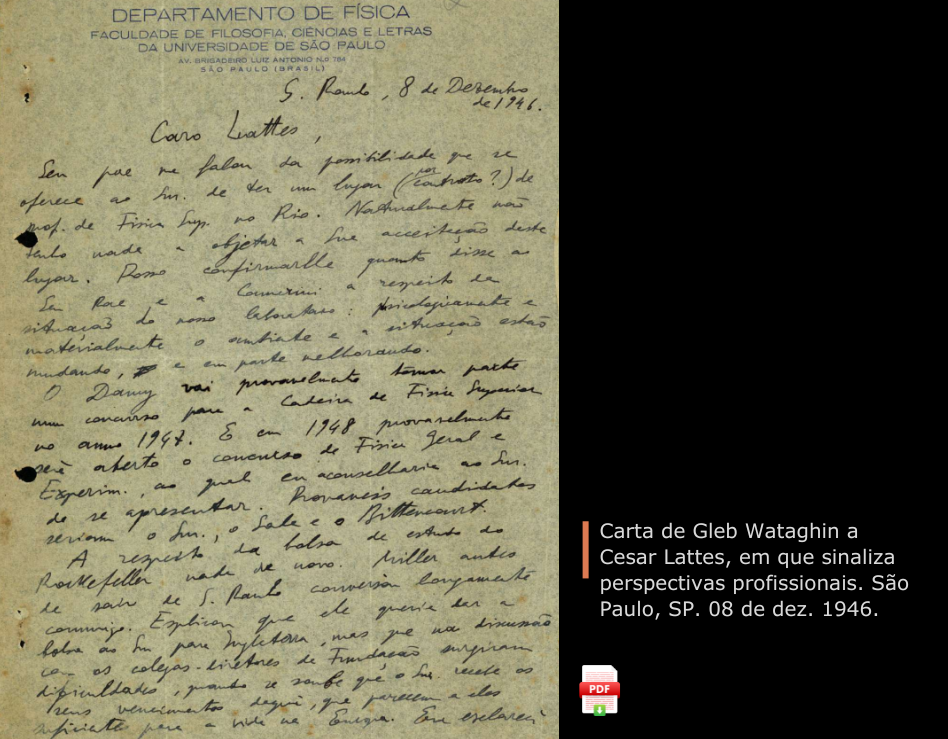 DEPARTAMENTO DE FÍSICA
FACULDADE DE FILOSOFIA, CIÊNCIAS E LETRAS
DA UNIVERSIDADE DE SÃO PAULO
AV. BRIGADEIRO LUIZ ANTONIO N.o 784
SÃO PAULO (BRASIL)
S. Paulo, 8 de Dezembro
de 1946.
Caro Lattes,
Seu pae me falou da possibilidade que se
oferece ao Snr. de ter um lugar (por contrato?) de
prof. de Fisica Sup. no Rio. Naturalmente não
tenho nada a objetar a Sua acceitação deste
lugar. Posso confirmarlle quanto disse ao
Seu Pae e a a respeito da
situação do nosso laboratorio: psicologicamente e
materialmente o ambiente e a situação estão
mudando, e em parte melhorando.
O Damy vai provavelmente tomar parte
num concurso para a Cadeira de Fisica Superior
no anno 1947. E em 1948 provavelmente
será aberto o concurso de Fisica Geral e
Experim., ao qual eu aconselharia ao Snr.
de se apresentar. Provaveis candidatos
seriam o Snr., o Sala e o Bittencourt.
A respeito da bolsa de estudo do
Rockfeller nada de novo. Miller antes
de sair de S. Paulo conversou longamente
commigo. Explicou que ele queria dar a
bolsa ao Snr para Inglaterra, mas que na discussão
com os colegas-diretores de Fundação surgiram
dificuldades, quando se soube que o Snr. recebe os
seus vencimentos daqui, que parecem a eles
suficientes para a vida na Europa. Eu esclareci
Carta de Gleb Wataghin a
Cesar Lattes, em que sinaliza
perspectivas profissionais. São
Paulo, SP. 08 de dez. 1946.
PDF